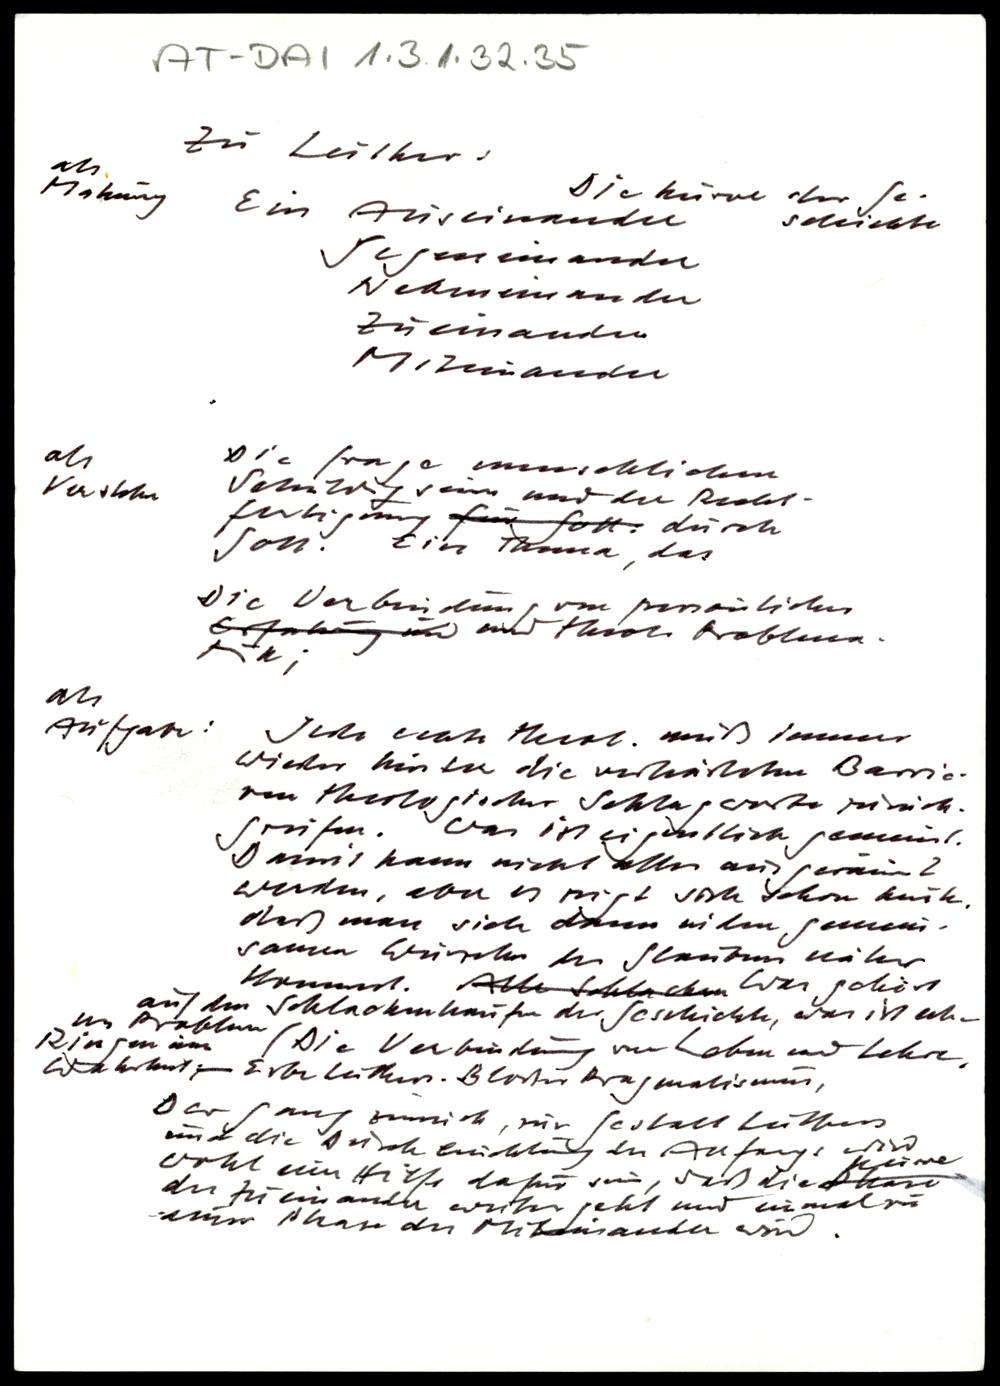 AT-DAI 1.3.1.32.35
Zu Luther:
als
Mahnung
Die Kurve der Ge-
schichte
Ein Auseinander
Gegeneinander
Nebeneinander
Zueinander
Miteinander
als
Verstehen
Die Frage menschlichen
Schuldigseins und der Recht-
fertigung für Gott. durch
Gott. Ein Thema, das
Die Verbindung von persönlicher
Erfahrung und und theol. Problema-
tik;
als
Aufgabe:
Jede echte Theol. muß immer
wieder hinter die verhärteten Barrie-
ren theologischer Schlagworte zurück-
greifen. Was ist eigentlich gemeint.
Damit kann nicht alles ausgeräumt
werden, aber es zeigt sich schon heute,
daß man sich dann in den gemein-
samen Wurzeln des Glaubens näher
kommt. Alle Schlacken Was gehört
auf den Schlackenhaufen der Geschichte, was ist
um Problem
Ringen um
Wahrheit;
(Die Verbindung von Leben und Lehre,
Erbe Luthers. Bloßer Pragmatismus,
Der Gang zurück, zur Gestalt Luthers
und die Durchleuchtung des Anfangs wird
wohl eine Hilfe dafür sein, daß die Phase Kurve
des Zueinander weiter geht und einmal zu
einer Phase des Miteinander wird.